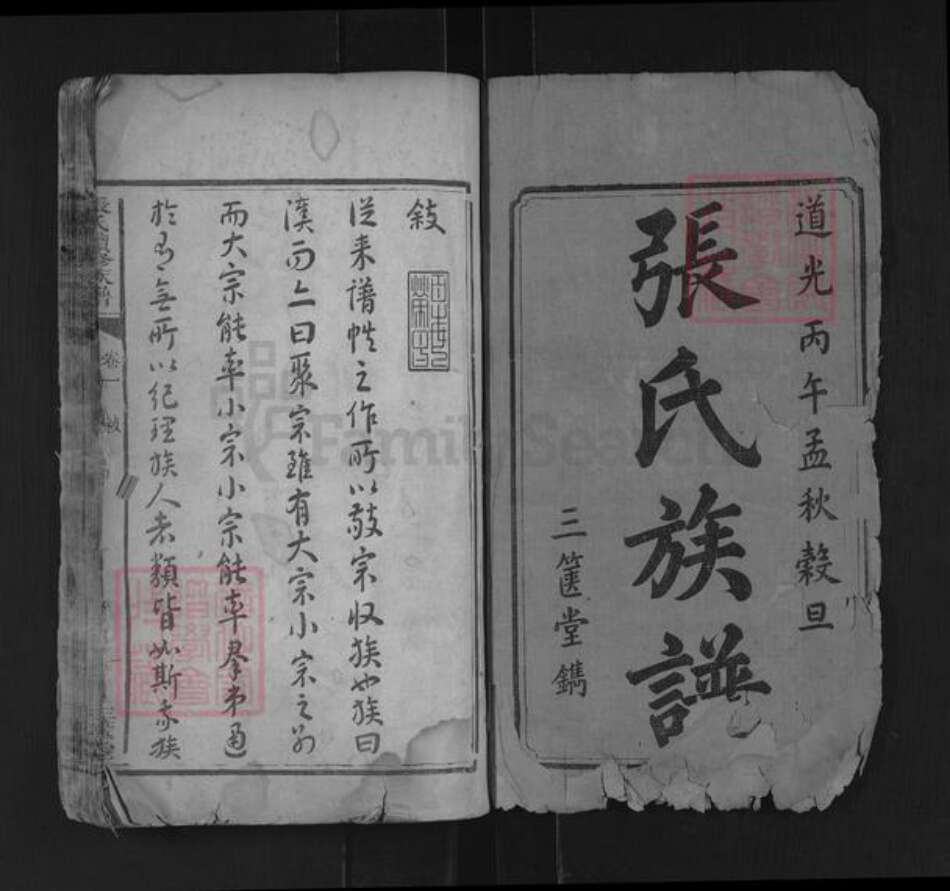 道光丙午孟秋穀旦
張氏族譜
三篋堂鐫
敍
從來譜牒之作所以敬宗收族也族曰
漢而上曰聚宗雖有大宗小宗之別
而大宗能率小宗小宗能率羣弟通
於有無所以紀理族人者類皆如斯我族
卷一
FamilySearch